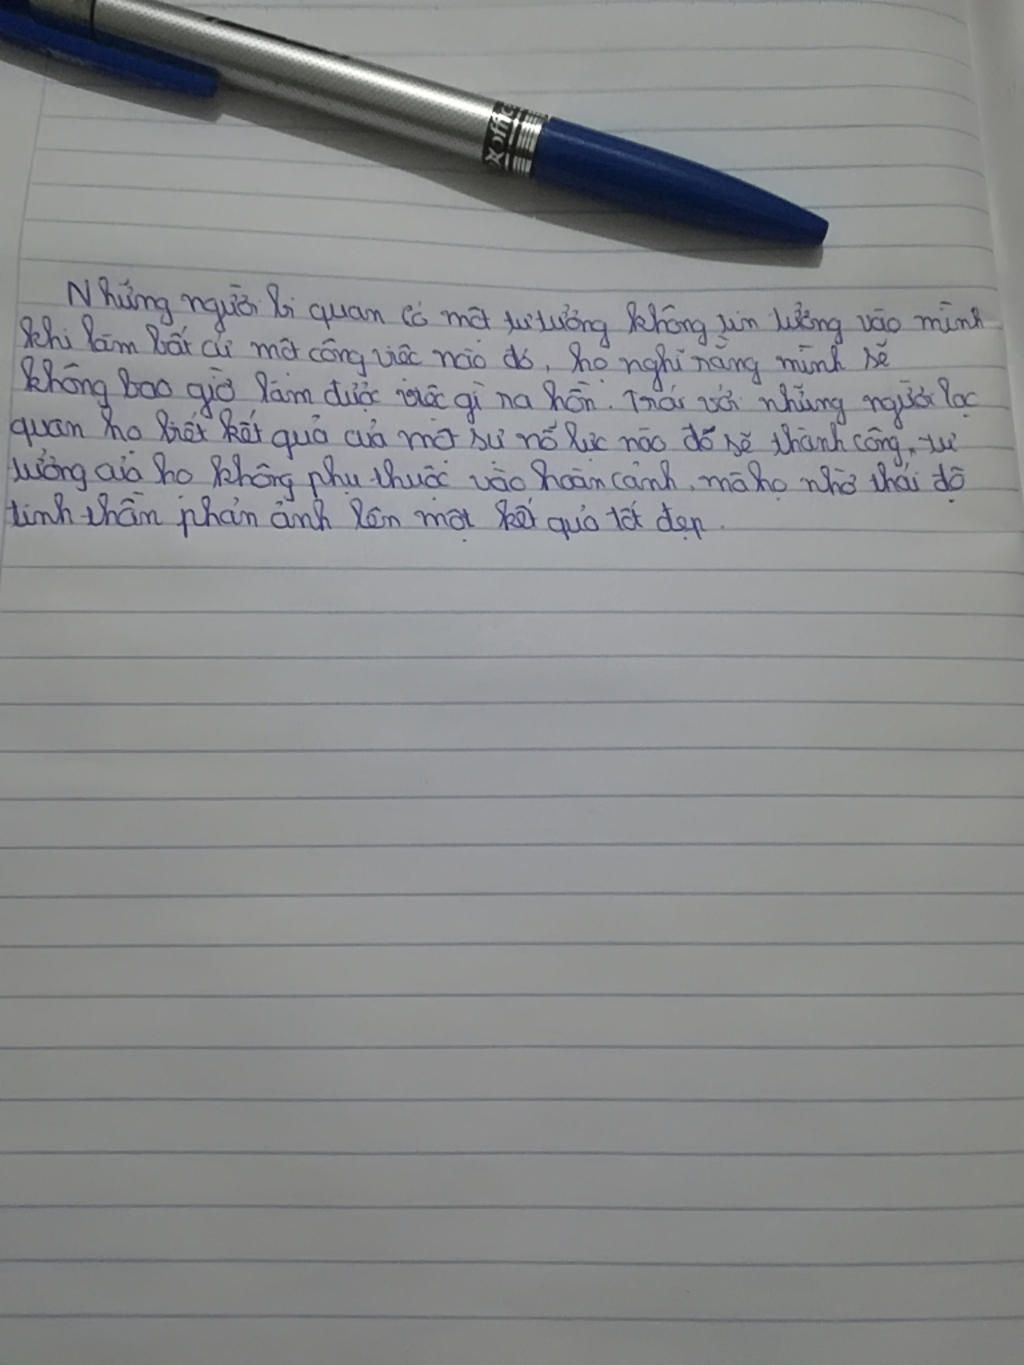 office
Những người bi quan có một tư tưởng không tin tưởng vào mình
khi làm bất cứ một công việc nào đó, họ nghĩ rằng mình sẽ
không bao giờ làm được việc gì ra hồn. Trái với những người lạc
quan họ biết kết quả của một sự nỗ lực nào đó sẽ thành công, tư
tưởng của họ không phụ thuộc vào hoàn cảnh, mà họ nhờ thái độ
tinh thần phản ảnh lên một kết quả tốt đẹp.